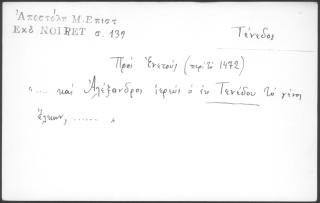 Ἀποστόλη Μ. Επιστ
Εκδ NOIRET σ. 139
Τένεδος
Πρὸς Ἐνετούς (περὶ τὸ 1472)
" .... καὶ Ἀλέξανδρος ἱερεὺς ὁ ἐκ Τενέδου τὸ γένος
ἕλκων, ...... "